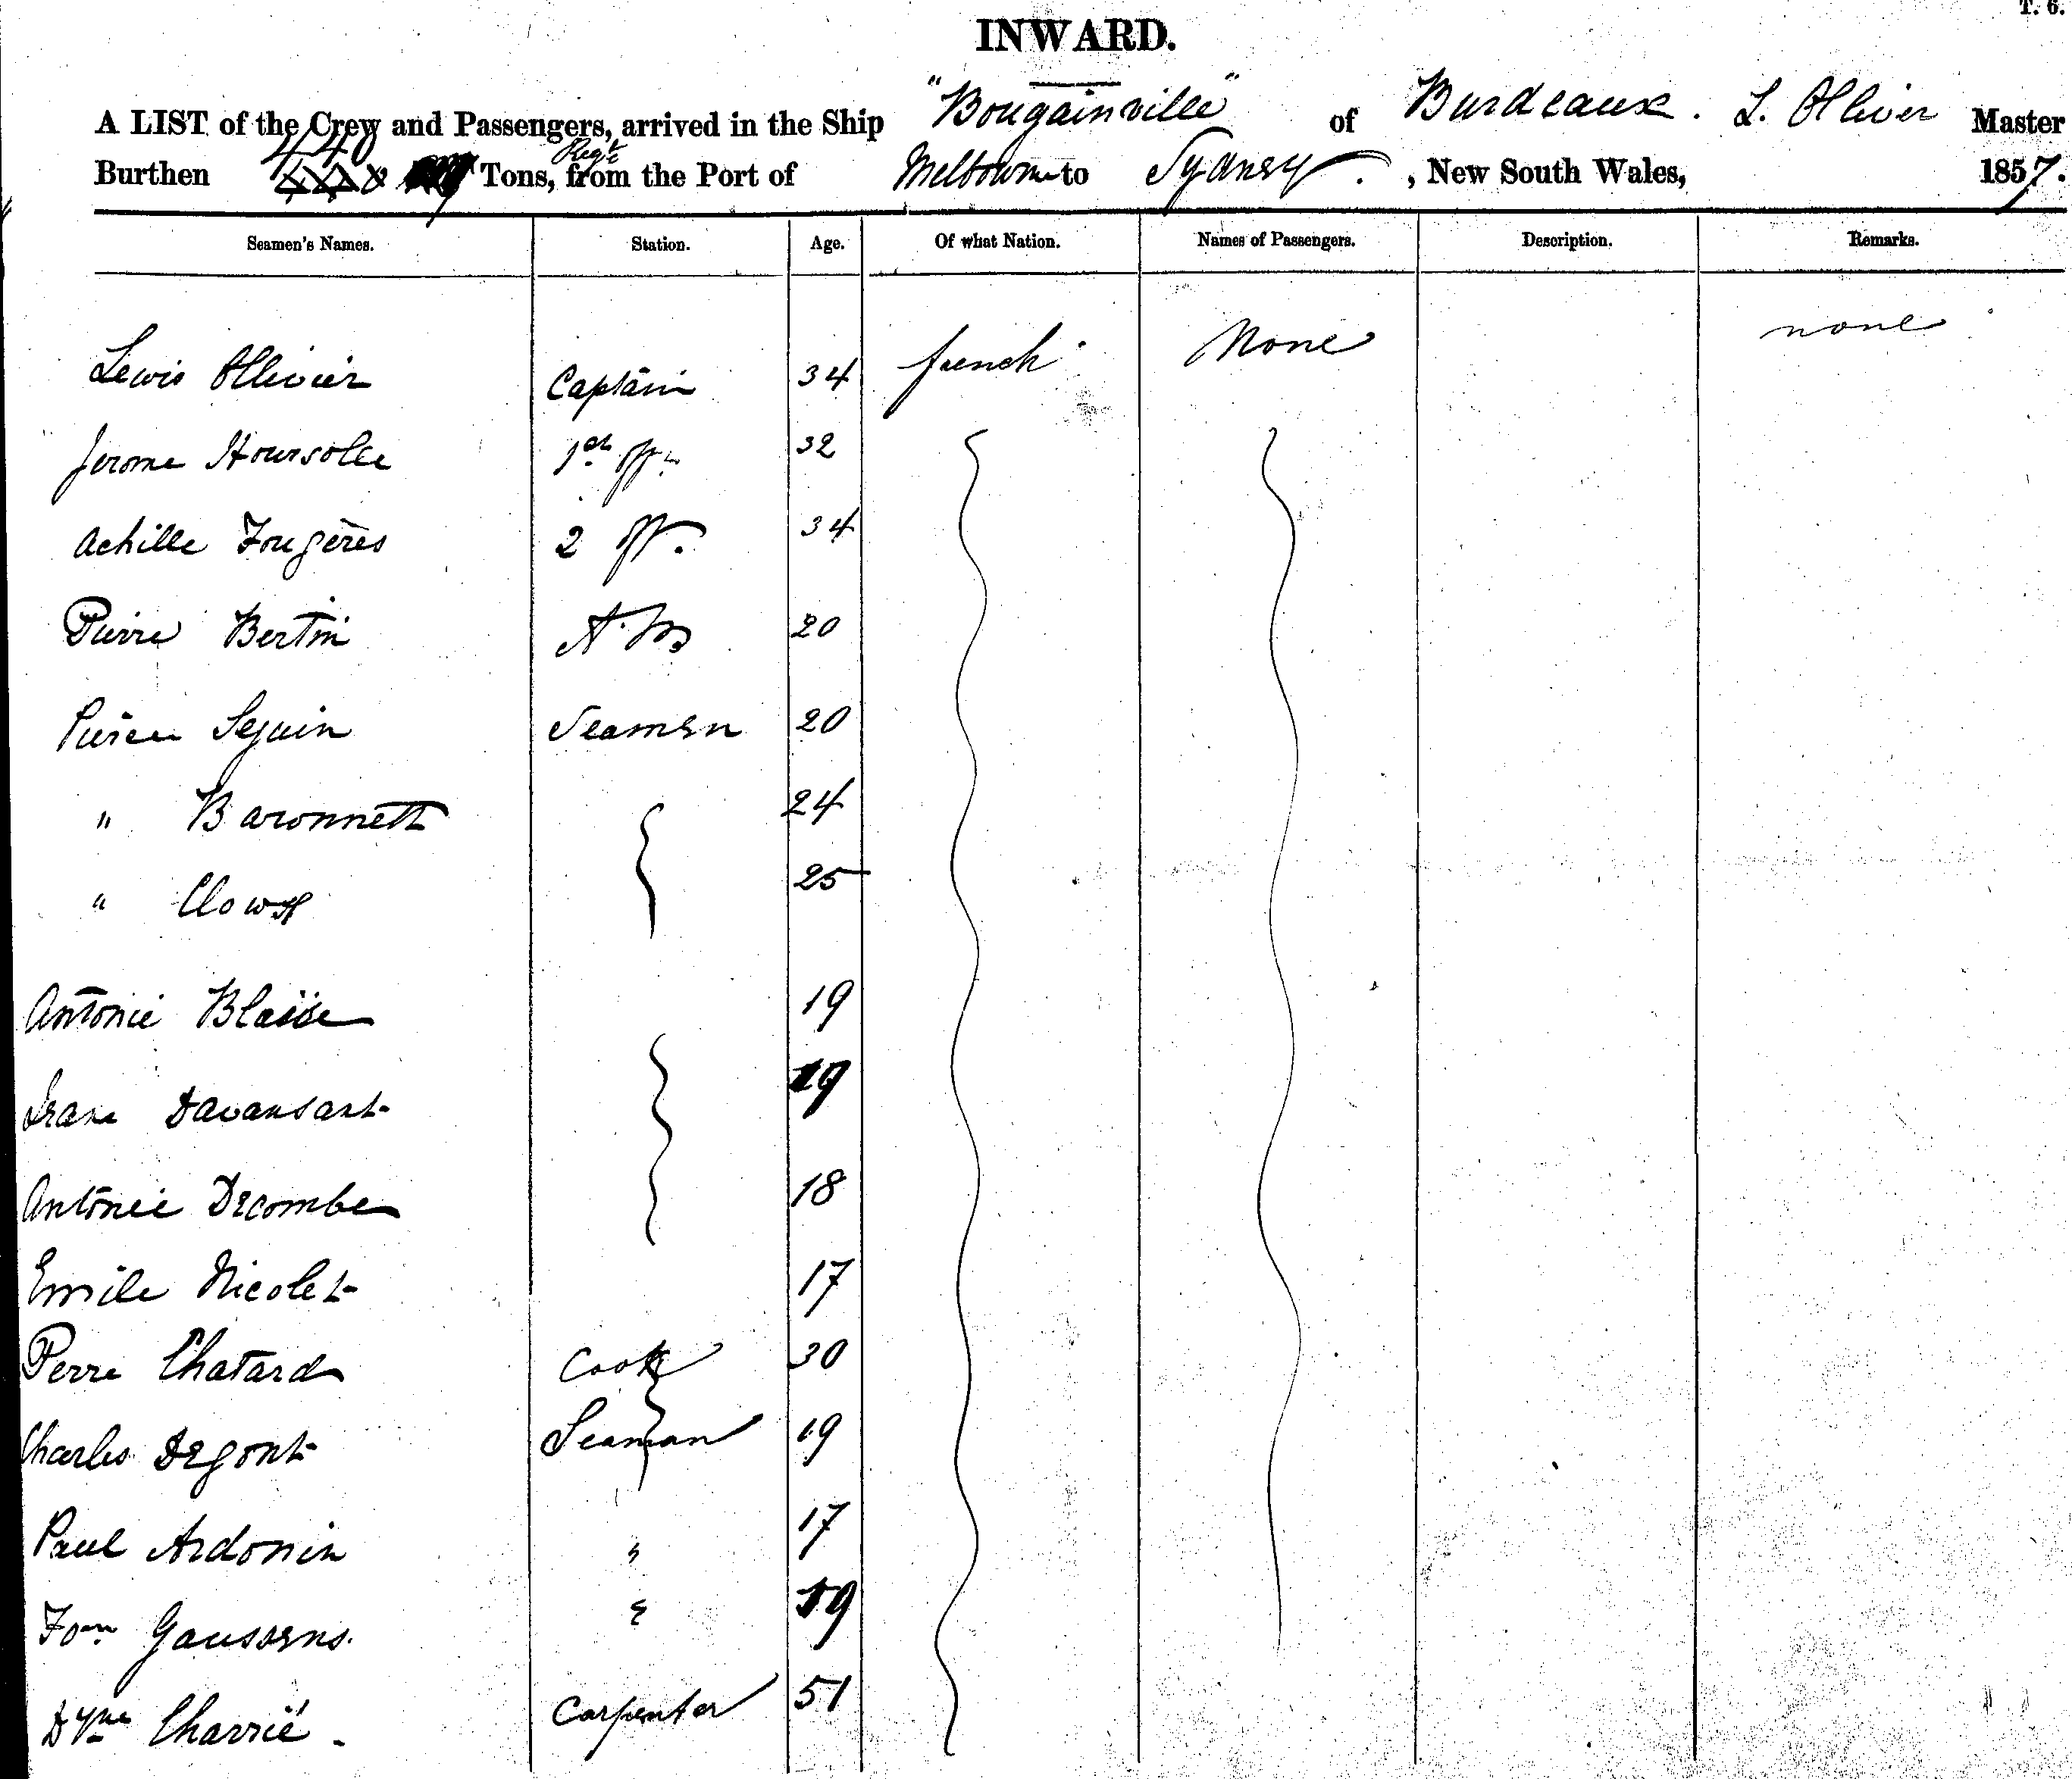 T. 6.
INWARD.
A LIST of the Crew and Passengers, arrived in the Ship "Bougainville" of Burdeaux. L. Ollivier Master
Burthen 440 Tons, Regt from the Port of Melbourne to Sydney. , New South Wales, 1857.
Seamen's Names. Station. Age. Of what Nation. Names of Passengers. Description. Remarks.
Lewis Ollivier Captain 34 french None none
Jerome Hoursolle 1st off. 32
Achille Fougères 2 off. 34
Pierre Bertin 20
Pierre Seguin Seamen 20
" Baronnett 24
" 25
Antonie Blaise 19
Davansant 19
Antonie Decombe 18
Emile Nicolet 17
Perre Chatard Cook 30
Charles Degont Seaman 19
Paul Ardonin " 17
Gaussens. " 19
Charrié - Carpenter 51